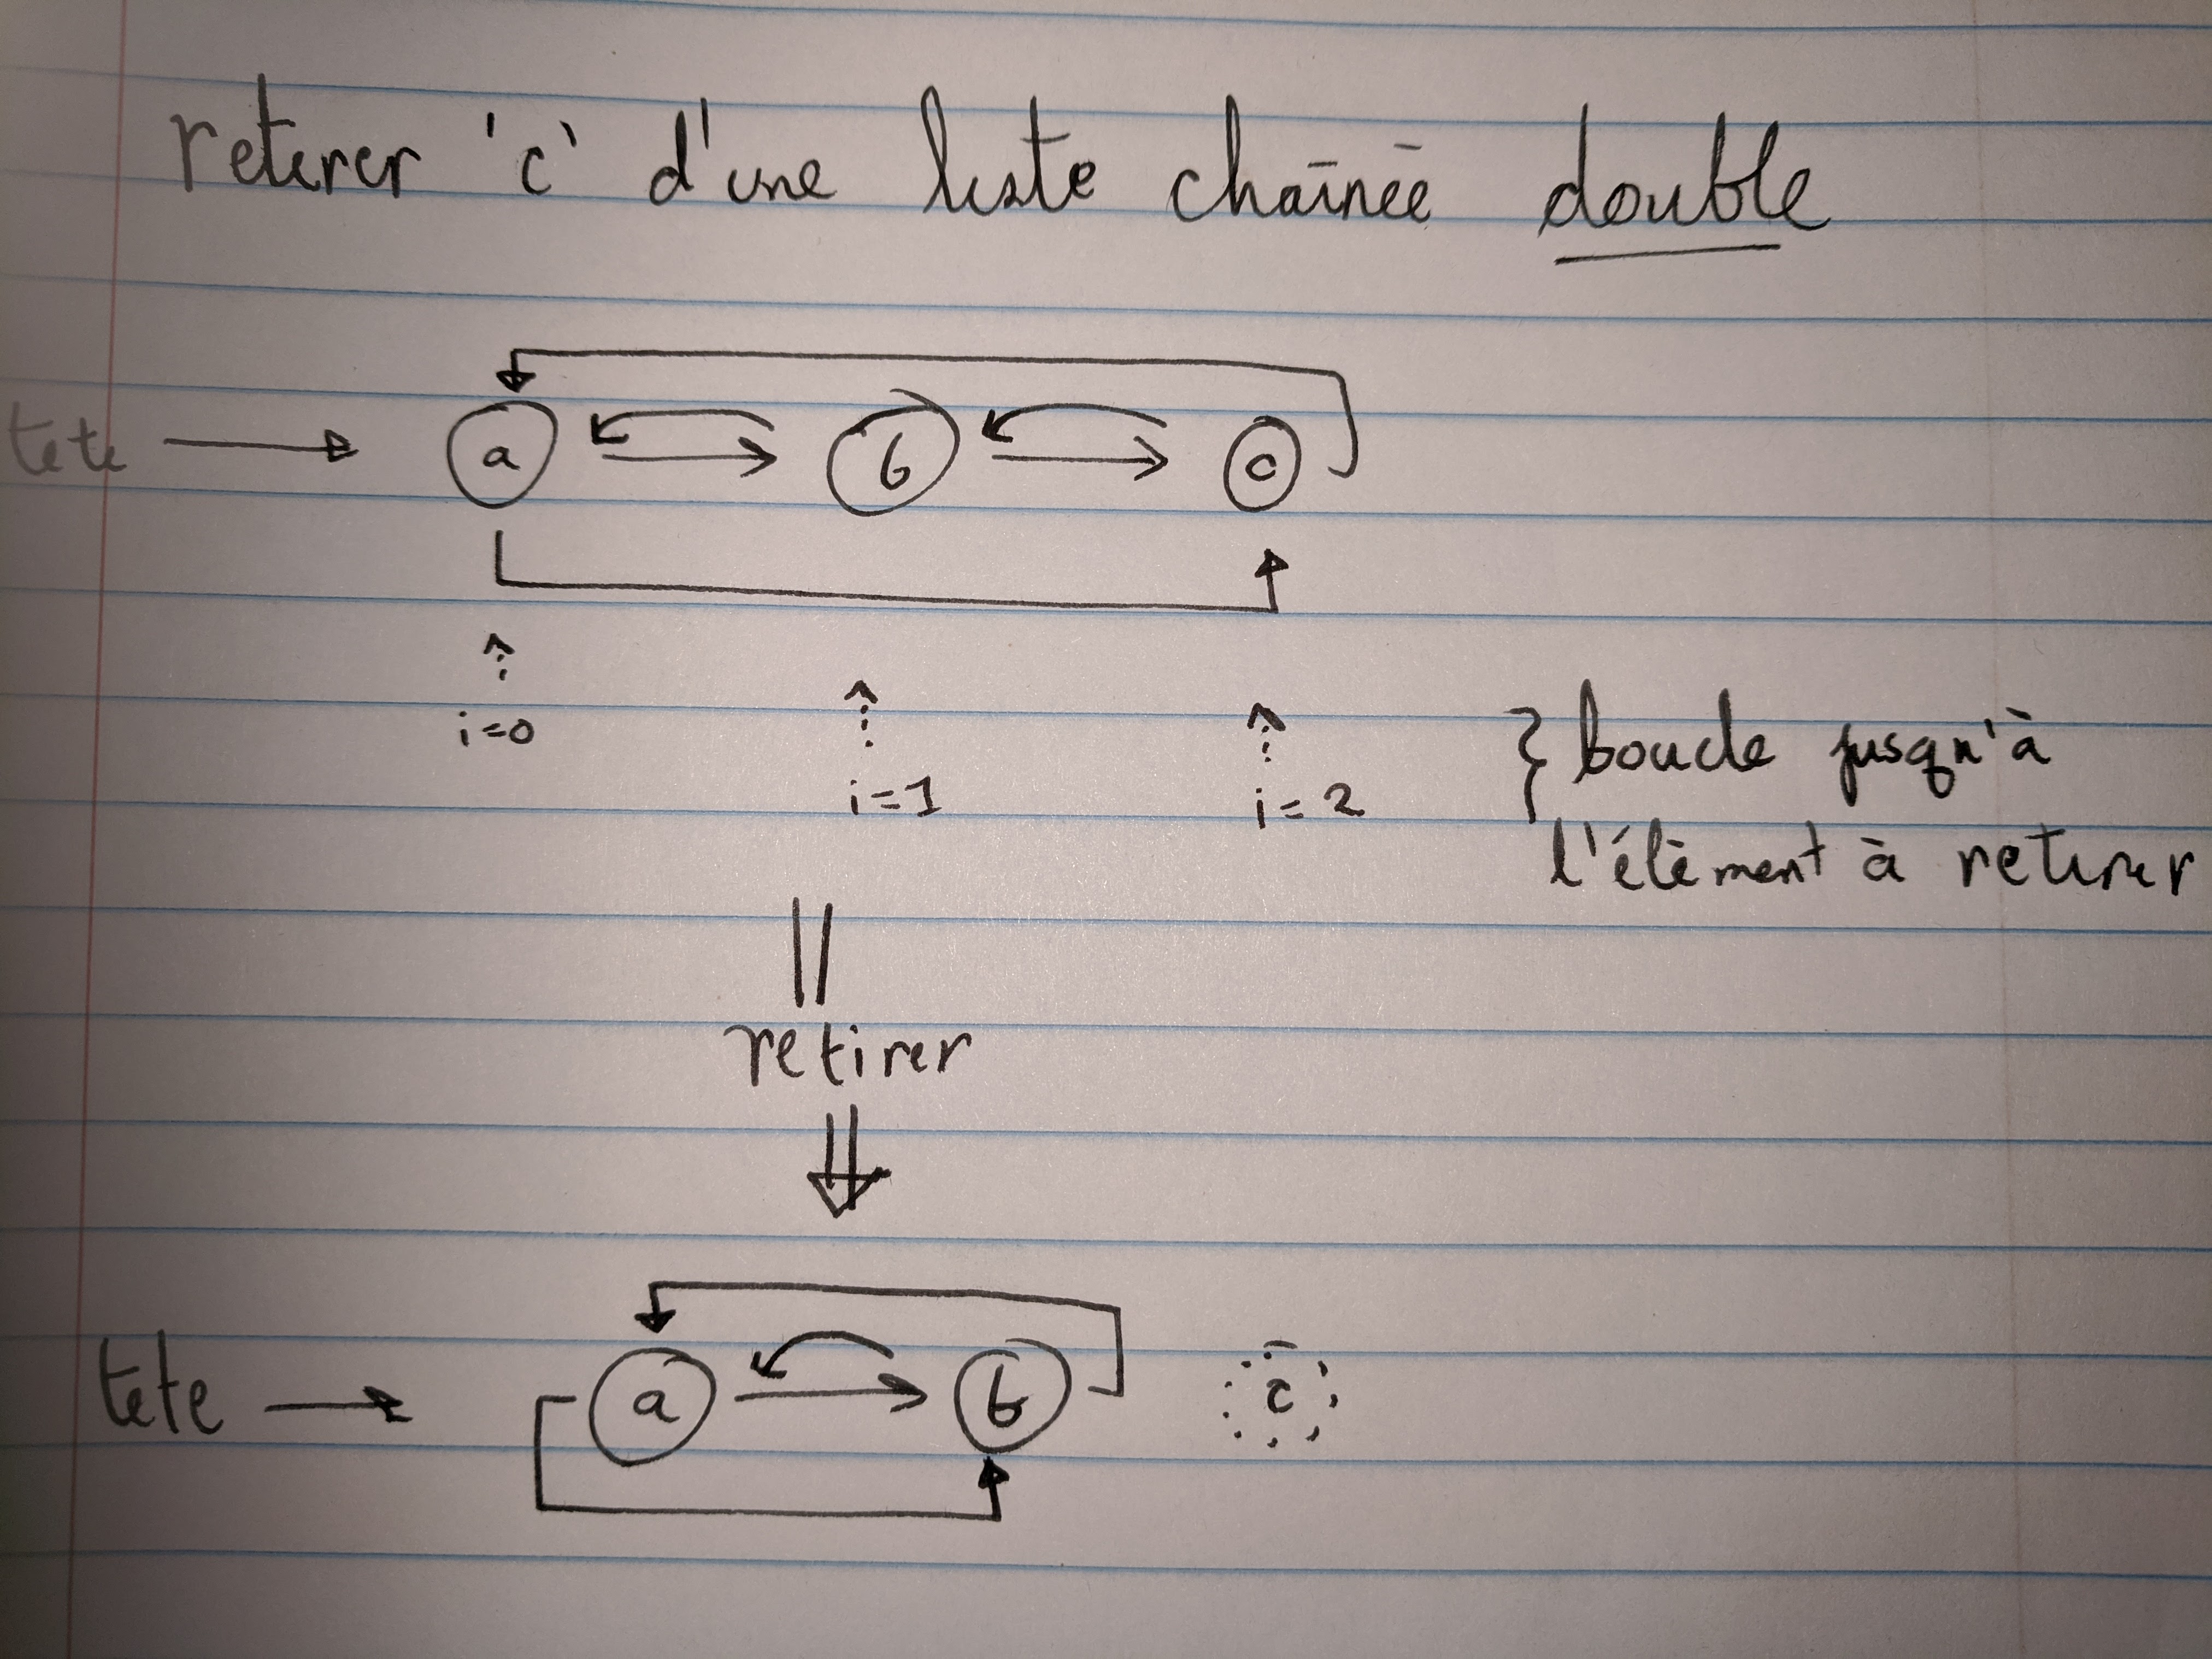 retirer 'c' d'une liste chaînée double
tete
a b c
i=0
i=1
i=2
} boucle jusqu'à
l'élément à retirer
retirer
tete
a b c